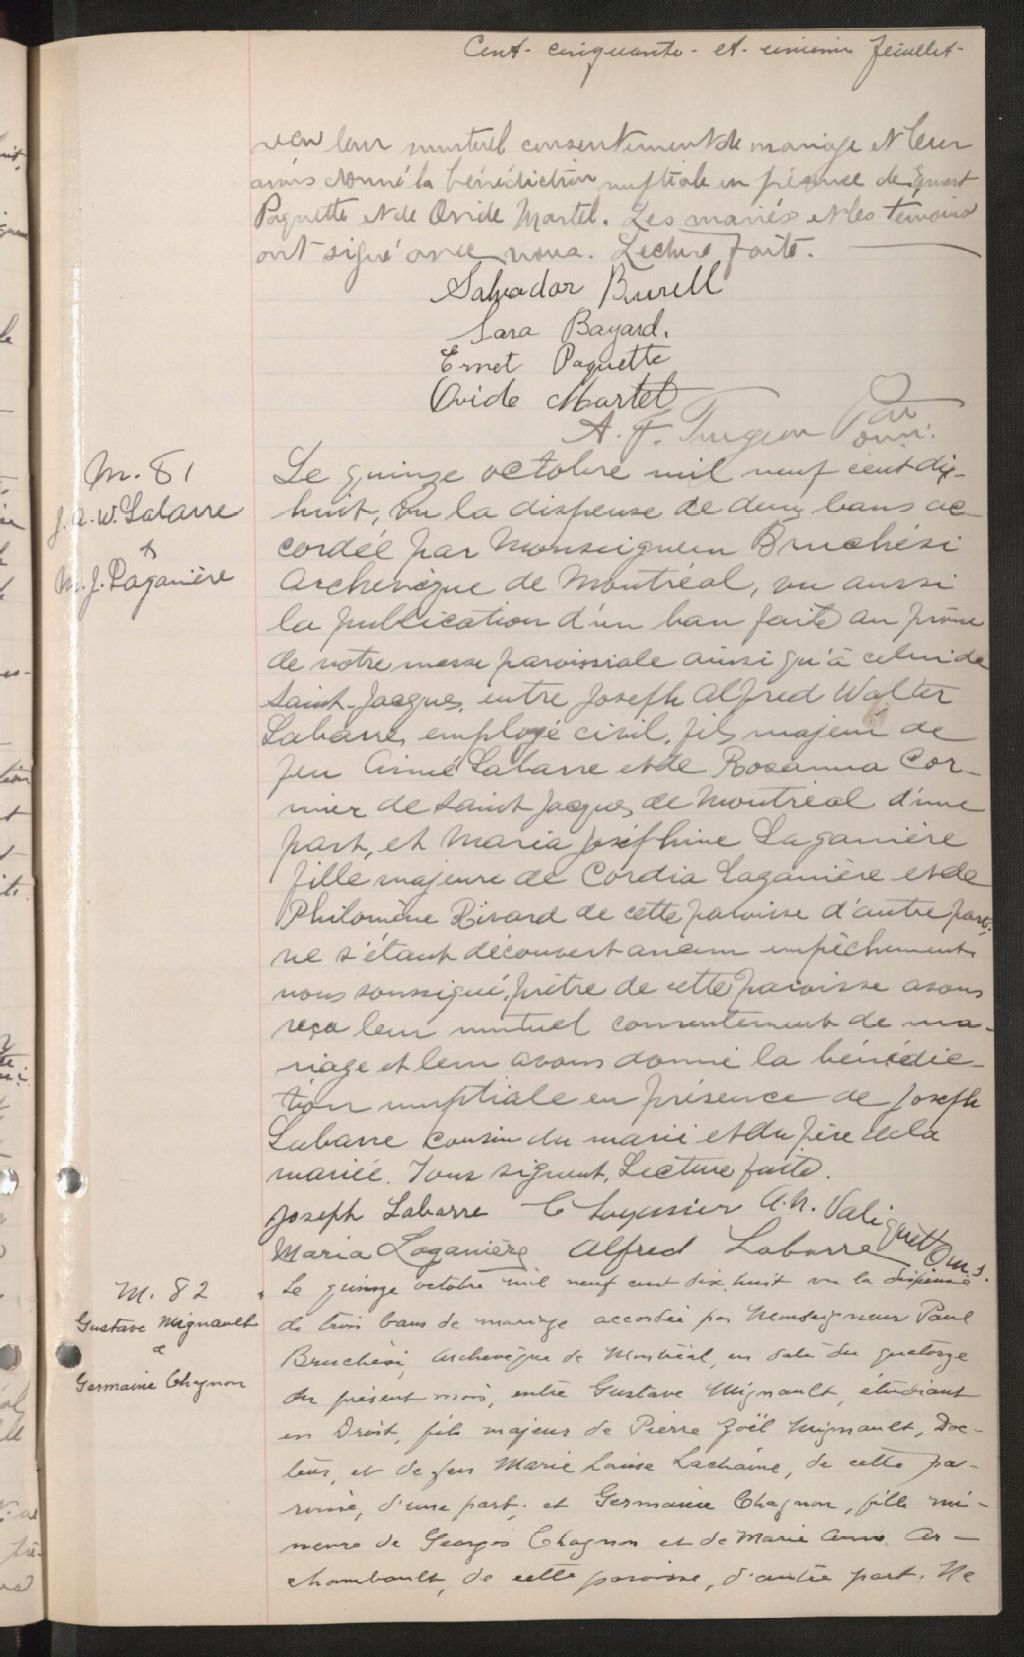 Cent-cinquante-et-unième feuillet-
reçu leur mutuel consentement de mariage et leur
avons donné la bénédiction nuptiale en présence de Ernest
Paquette et de Ovide Martel. Les mariés et les témoins
ont signé avec nous. Lecture faite.
Salvador Burell
Sara Bayard.
Ernet Paquette
Ovide Martel
A. F. Turgeon
M. 81
J. A. W. Labarre
&
M. J. Laganière
Le quinze octobre mil neuf cent dix-
huit, vu la dispense de deux bans ac-
cordée par Monseigneur Bruchési
Archevêque de Montréal, vu aussi
la publication d'un ban faite au prône
de notre messe paroissiale ainsi qu'à celui de
Saint-Jacques, entre Joseph Alfred Walter
Labarre, employé civil, fils majeur de
feu Aimé Labarre et de Rosanna Cor-
mier de Saint Jacques de Montréal d'une
part, et Maria Joséphine Laganière
fille majeure de Cordia Laganière et de
Philomène Rivard de cette paroisse d'autre part;
ne s'étant découvert aucun empêchement
nous soussigné, prêtre de cette paroisse avons
reçu leur mutuel consentement de ma-
riage et leur avons donné la bénédic-
tion nuptiale en présence de Joseph
Labarre cousin du marié et du père de la
mariée. Tous signent, Lecture faite.
Joseph Labarre A. N. Valiquette O.m.s.
Maria Laganière Alfred Labarre
M. 82
Gustave Mignault
&
Germaine Chagnon
Le quinze octobre mil neuf cent dix huit vu la dispense
de trois bans de mariage accordée par Monseigneur Paul
Bruchési, Archevêque de Montréal, en date du quatorze
du présent mois, entre Gustave Mignault, étudiant
en Droit, fils majeur de Pierre Zoël Mignault, Doc-
teur, et de feu Marie Louise Lachaine, de cette pa-
roisse, d'une part; et Germaine Chagnon, fille mi-
neure de Georges Chagnon et de Marie Anne Ar-
chambault, de cette paroisse, d'autre part. Ne